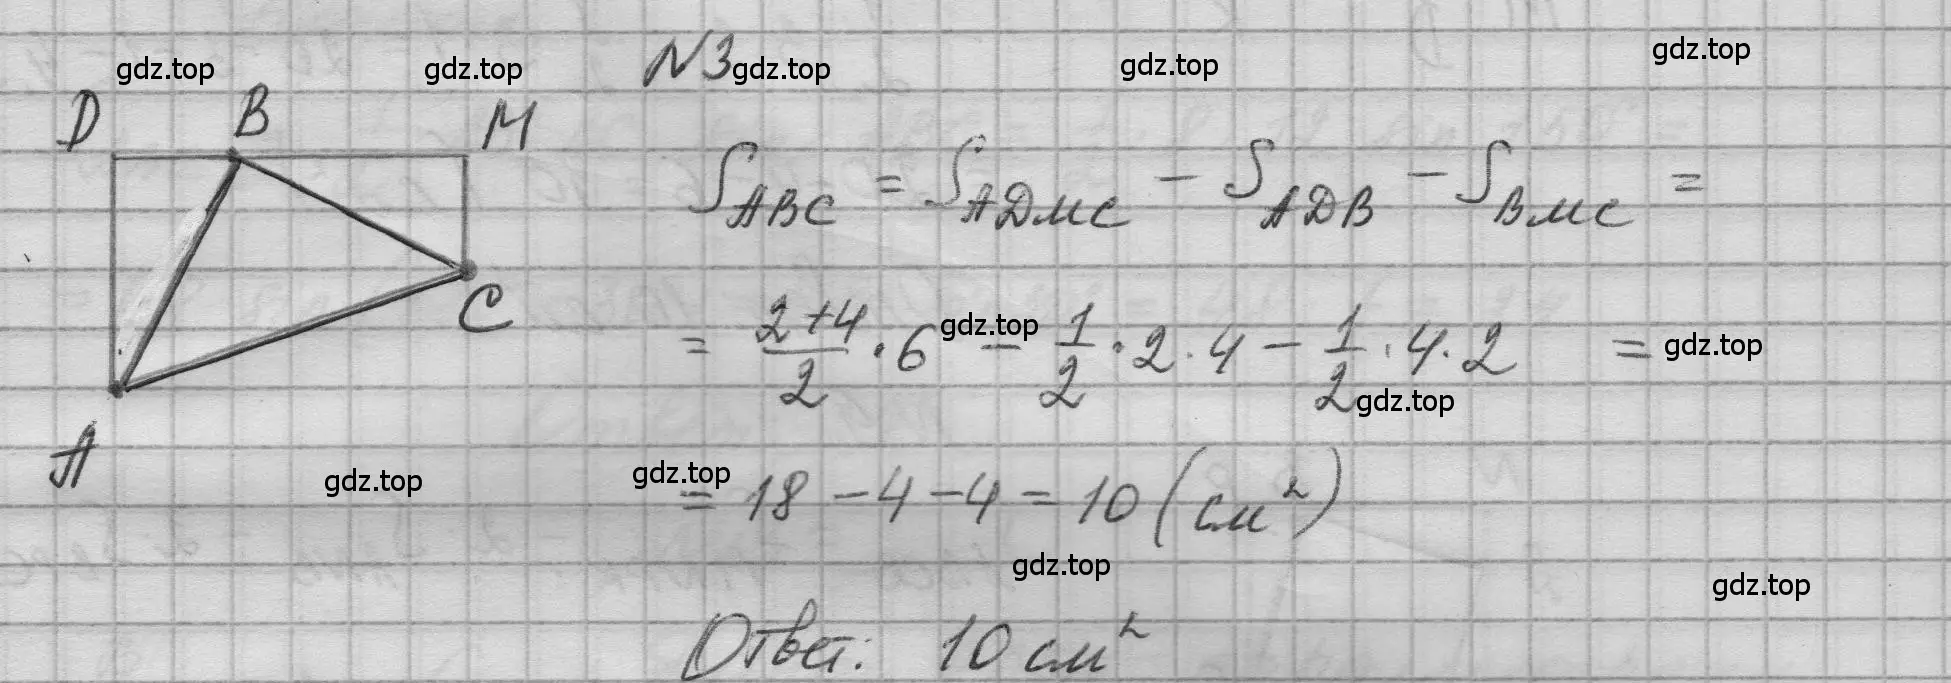 №3
gdz.top gdz.top gdz.top gdz.top gdz.top
D B M
S_ABC = S_ADMC − S_ADB − S_BMC =
C
= (2+4)/2 · 6 − 1/2 · 2 · 4 − 1/2 · 4 · 2 =
gdz.top gdz.top
gdz.top
A
gdz.top gdz.top
= 18 − 4 − 4 = 10 (см²)
gdz.top gdz.top
Ответ: 10 см²